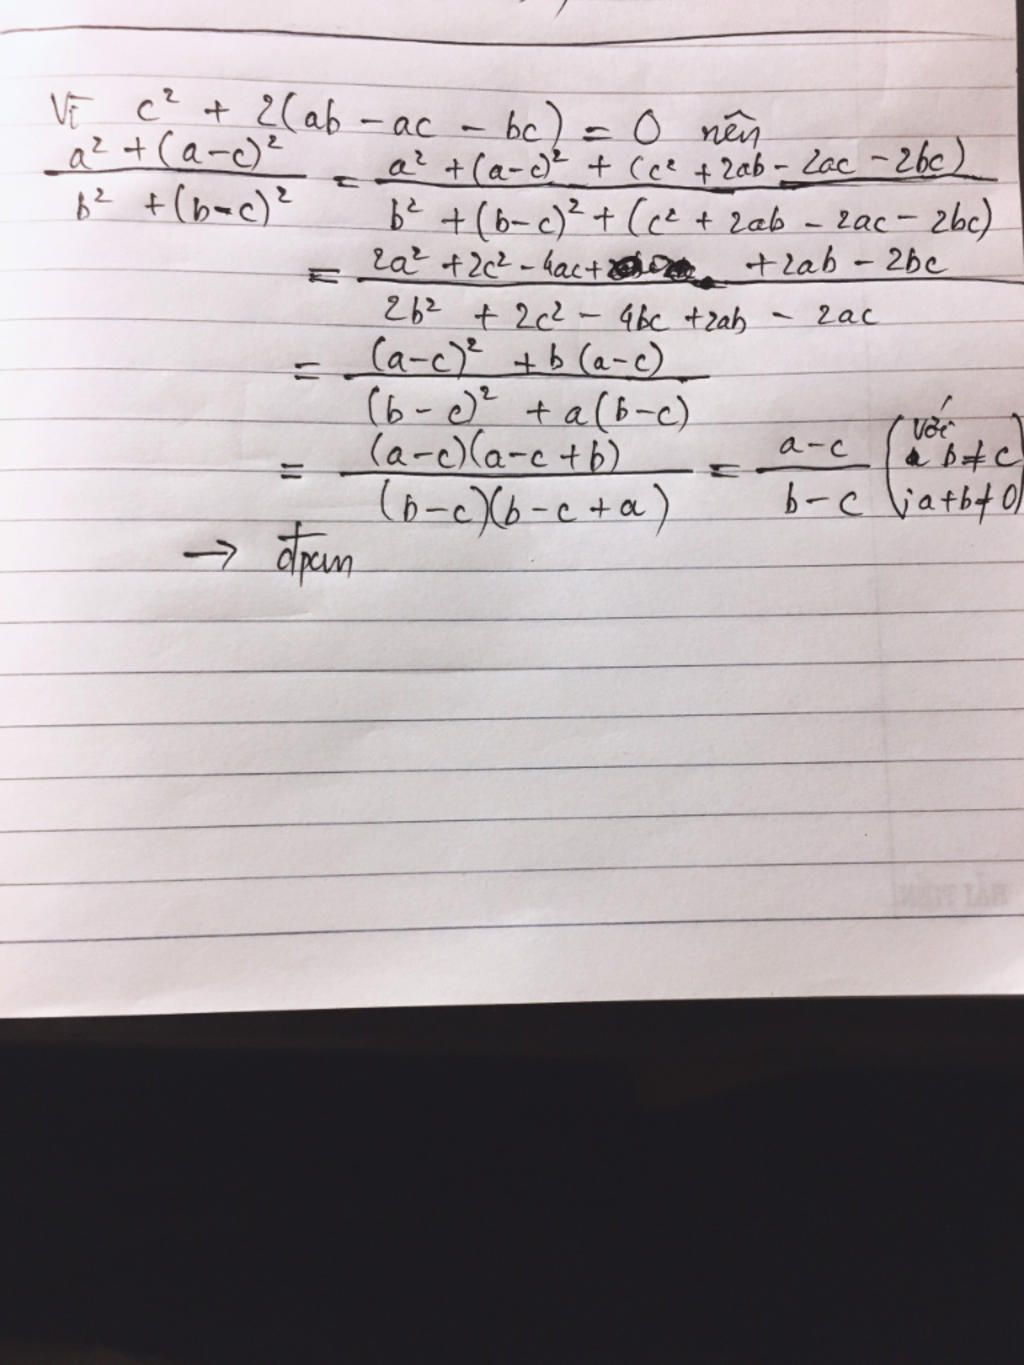 Vì c² + 2(ab - ac - bc) = 0 nên
a² + (a-c)² / b² + (b-c)² = a² + (a-c)² + (c² + 2ab - 2ac - 2bc) / b² + (b-c)² + (c² + 2ab - 2ac - 2bc)
= 2a² + 2c² - 4ac + + 2ab - 2bc / 2b² + 2c² - 4bc + 2ab - 2ac
= (a-c)² + b(a-c) / (b-c)² + a(b-c)
= (a-c)(a-c+b) / (b-c)(b-c+a) = a-c / b-c (với b≠c ; a+b≠0)
→ đpcm